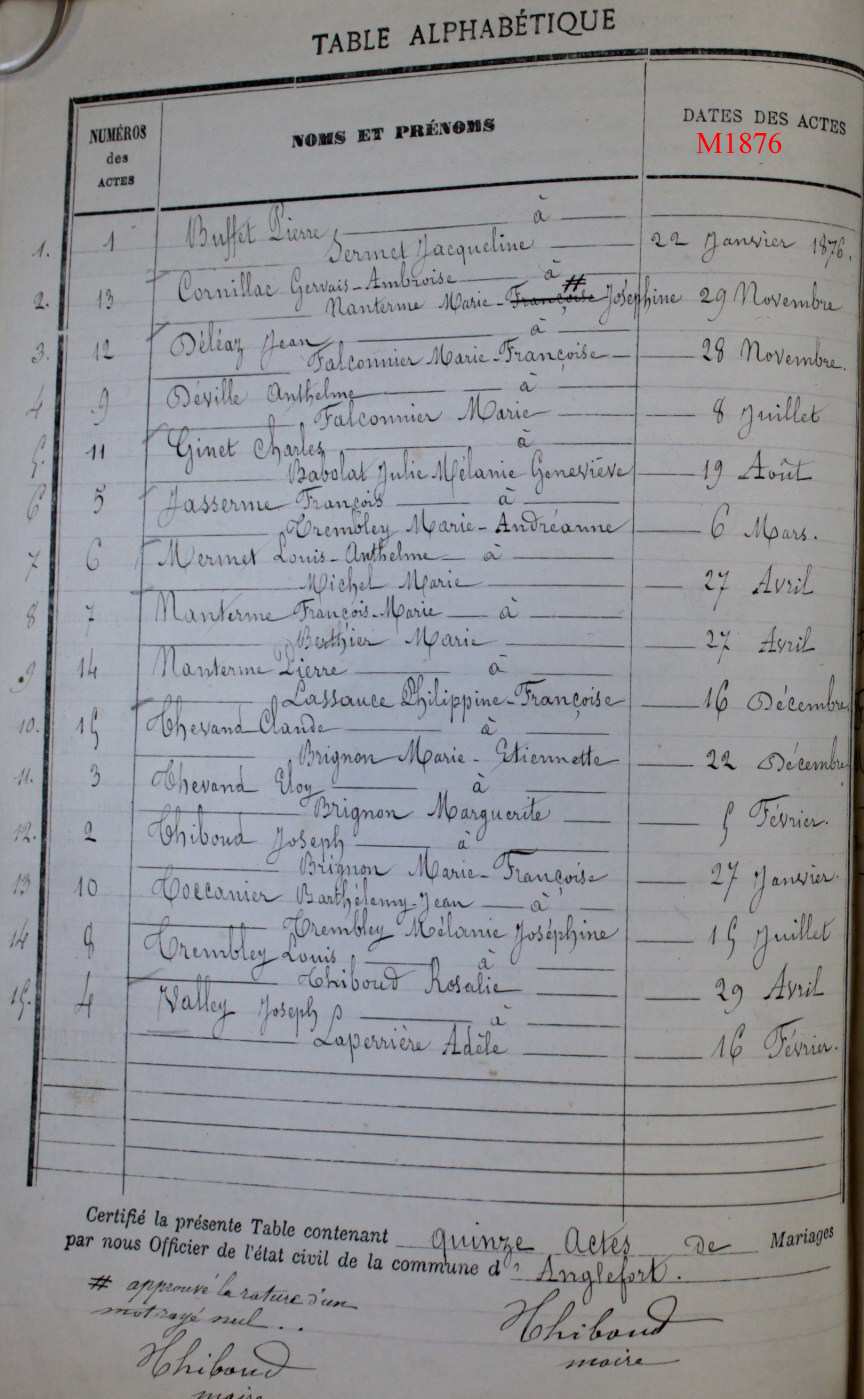 TABLE ALPHABÉTIQUE
NUMÉROS
des
ACTES
NOMS ET PRÉNOMS
DATES DES ACTES
M1876
1. 1 Buffet Pierre à
Sermet Jacqueline 22 Janvier 1876.
2. 13 Cornillac Gervais-Ambroise à #
Nanterme Marie-Françoise Joséphine 29 Novembre
3. 12 Déléaz Jean à
Falconnier Marie-Françoise 28 Novembre.
4 9 Déville Anthelme à
Falconnier Marie 8 Juillet
5. 11 Ginet Charles à
Babolat Julie Mélanie Geneviève 19 Août
6 5 Jasserme François à
Trembley Marie-Andréanne 6 Mars.
7 6 Mermet Louis-Anthelme à
Michel Marie 27 Avril
8 7 Nanterme François-Marie à
Berthier Marie 27 Avril
9 14 Nanterme Pierre à
Lassauce Philippine-Françoise 16 Décembre
10. 15 Thevand Claude à
Brignon Marie-Etiennette 22 Décembre
11. 3 Thevand Eloy à
Brignon Marguerite 5 Février.
12. 2 Thiboud Joseph à
Brignon Marie-Françoise 27 Janvier.
13 10 Toccanier Barthélemy-Jean à
Trembley Mélanie Joséphine 15 Juillet
14 8 Trembley Louis à
Thiboud Rosalie 29 Avril
15. 4 Valley Joseph à
Laperrière Adèle 16 Février.
Certifié la présente Table contenant quinze Actes de Mariages
par nous Officier de l'état civil de la commune d'Anglefort.
# approuvé la rature d'un
mot rayé nul..
Thiboud
maire
Thiboud
maire